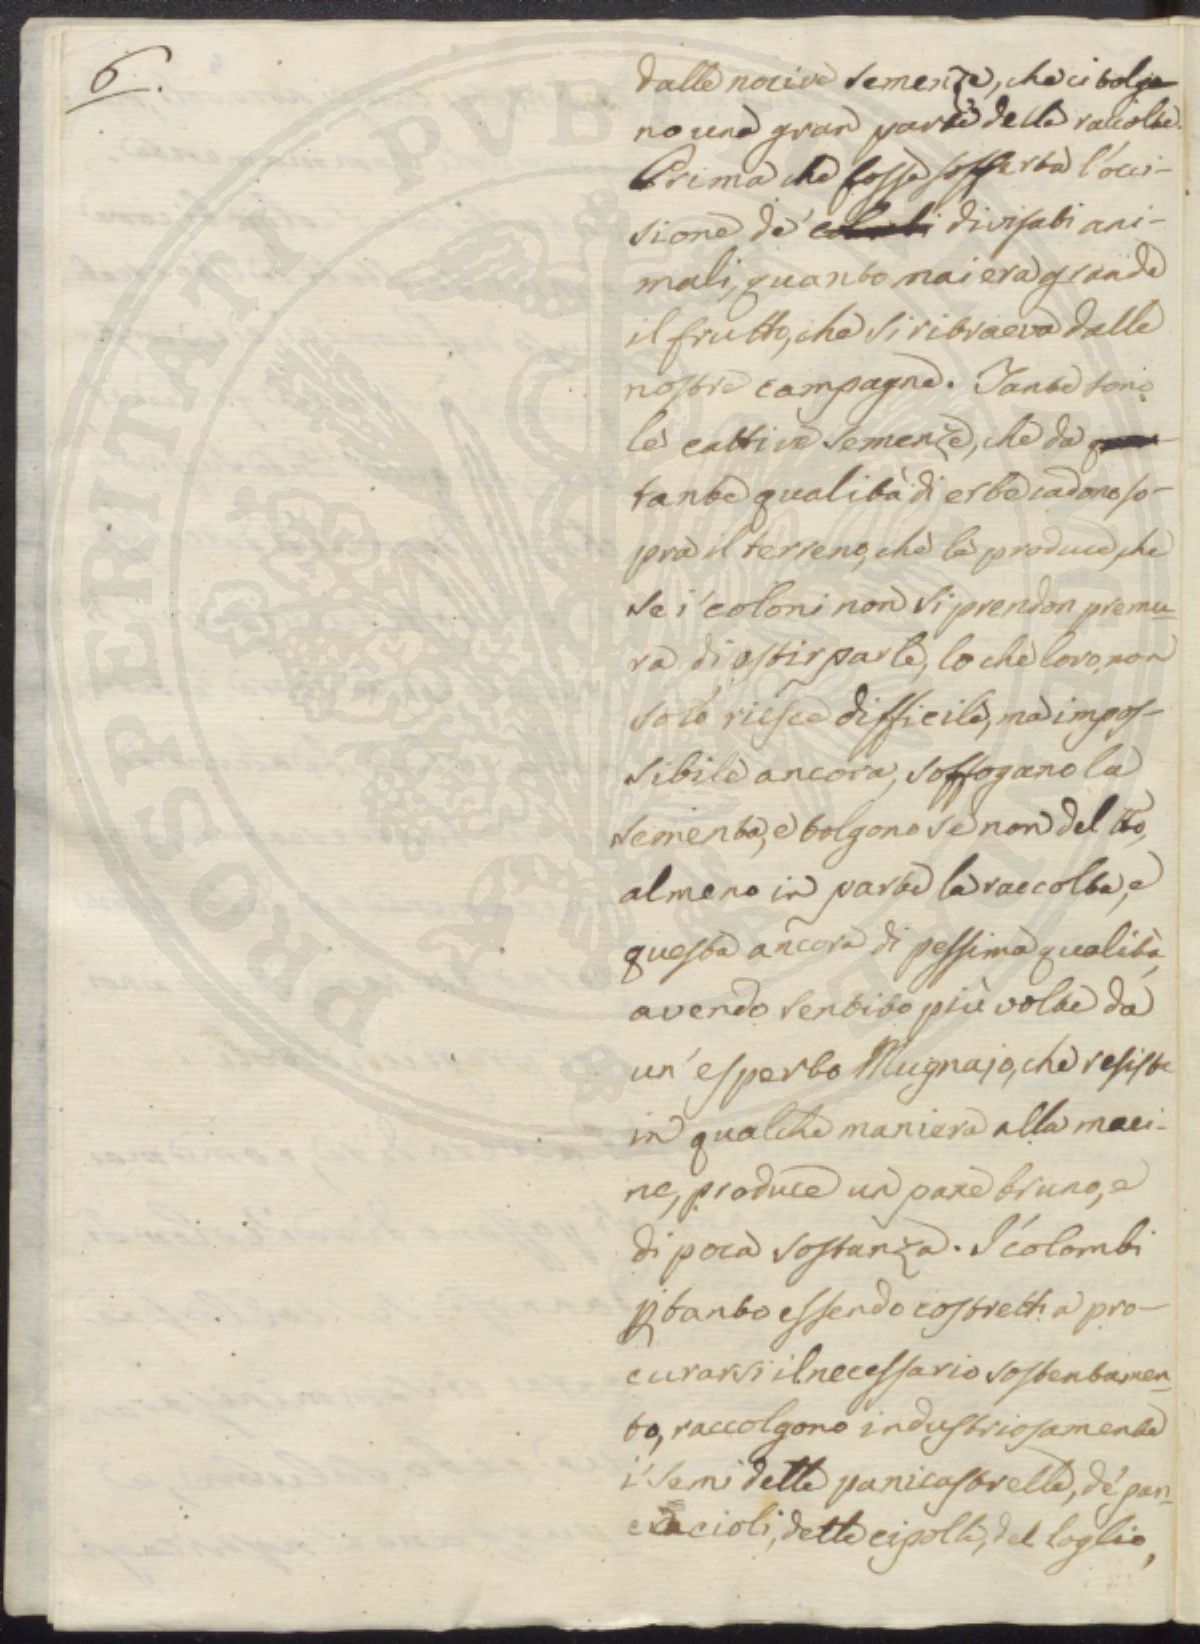 6.
dalle nocive semenze, che ci tolgo
no una gran parte della raccolta.
Prima che fosse sofferta l'occi-
sione de' colombi divisati ani-
mali, quanto mai era grande
il frutto, che si ritraeva dalle
nostre campagne. Tante sono
le cattive semenze, che da
tante qualità di erbe cadono so-
pra il terreno, che le produce, che
se i' coloni non si prendon premu-
ra di estirparle, lo che loro non
solo riesce difficile, ma impos-
sibile ancora, soffogano la
sementa, e tolgono se non del tto,
almeno in parte la raccolta, e
questa ancora di pessima qualità,
avendo sentito più volte da
un' esperto Mugnajo, che resiste
in qualche maniera alla maci-
ne, produce un pane bruno, e
di poca sostanza. I' colombi
ptanto essendo costretti a pro-
curarsi il necessario sostentamen-
to, raccolgono industriosamente
i' semi delle panicastrelle, de' pan-
cacioli, delle cipolle, del loglio,
PROSPERITATI PVBLICAE